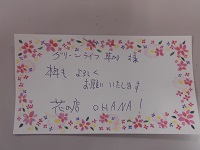 グリーンライフ 様
よろしく
お願いいたします
花の店 OHANA!